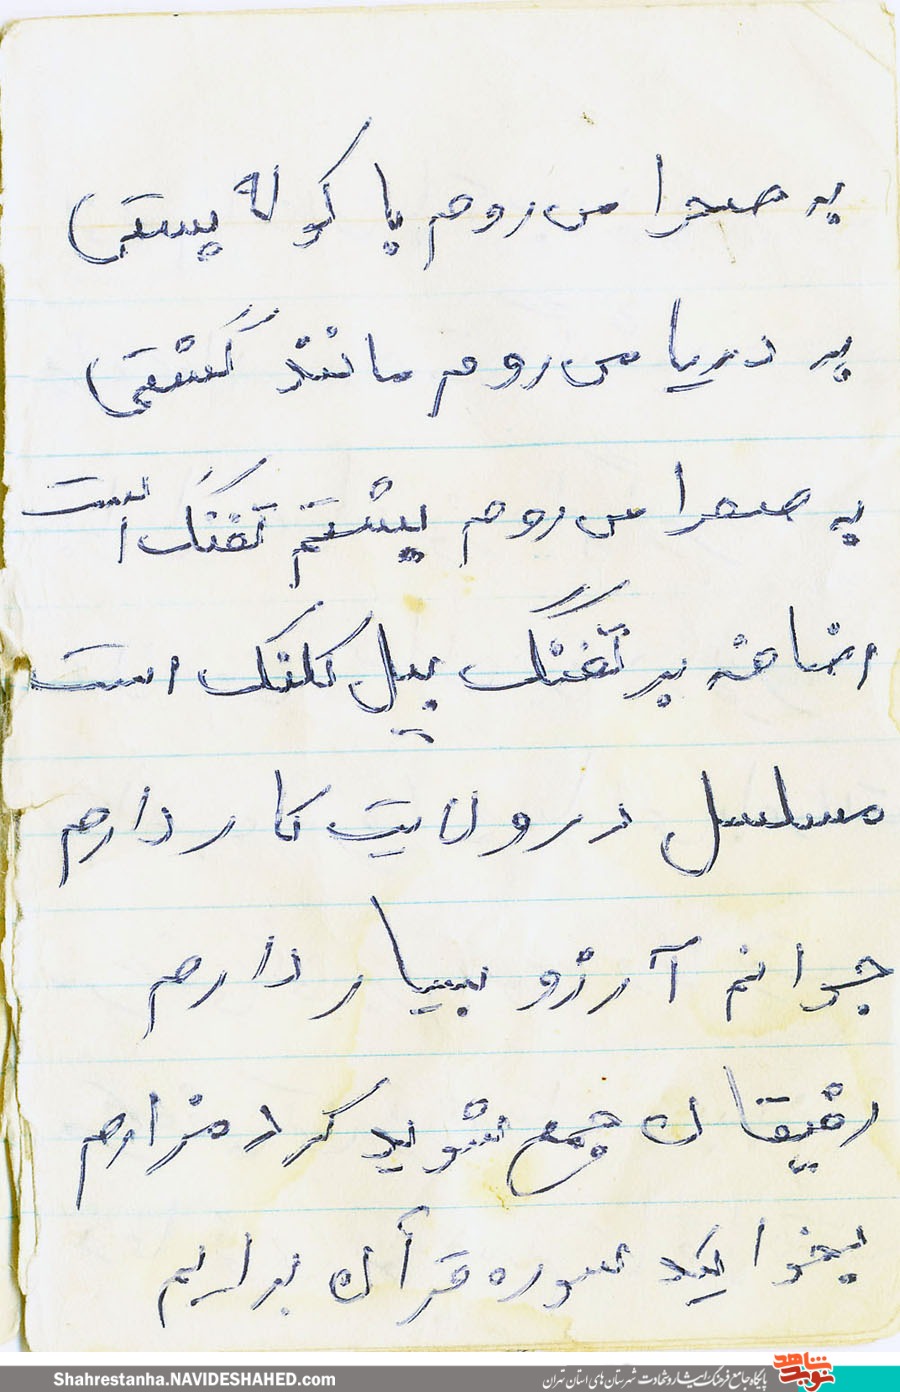 به صحرا می روم با کوله پستی
به دریا می روم مانند کشتی
به صحرا می روم پیشتم تفنگ است
اضافه بر تفنگ بیل کلنگ است
مسلسل در ولایت کار دارم
جوانم آرزو بسیار دارم
رفیقان جمع شوید کرد مزارم
بخوانید سوره قرآن برایم
Shahrestanha.NAVIDESHAHED.com
نوید شاهد
پایگاه جامع فرهنگ ایثار و شهادت شهرستان های استان تهران